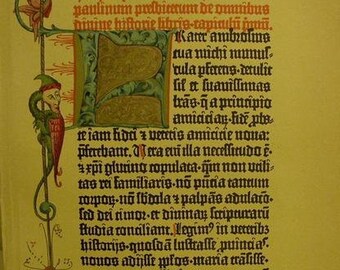 paulinum presbiterum de omnibus
diuine historie libris. capitulū pⁱmū.
FRater ambrosius
tua michi munus-
cula ꝑferens. detulit
sił et suauissimas
lr̄as. q̄ a principio
amiciciaꝝ. fidē ꝓba-
te iam fidei et veteris amicicie noua:
ꝑferebant. Vera em̄ illa necessitudo ē.
⁊ xp̄i glutino copulata: qm̄ non vtili-
tas rei familiaris. nō pn̄cia tantum
corpoꝝ. nō s̄bdola ⁊ palpās adulac̄o.
sed dei timor. et diuinaꝝ scripturarū
studia conciliant. Legimꝰ in veteribꝫ
historijs. quosdā lustrasse. ꝓuīcias.
nouos adijsse ppłos. maria trāsisse.